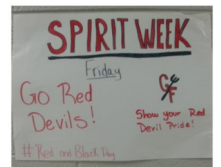 SPIRIT WEEK
Friday
Go Red
Devils!
GF
Show your Red
Devil Pride!
# Red and Black Day